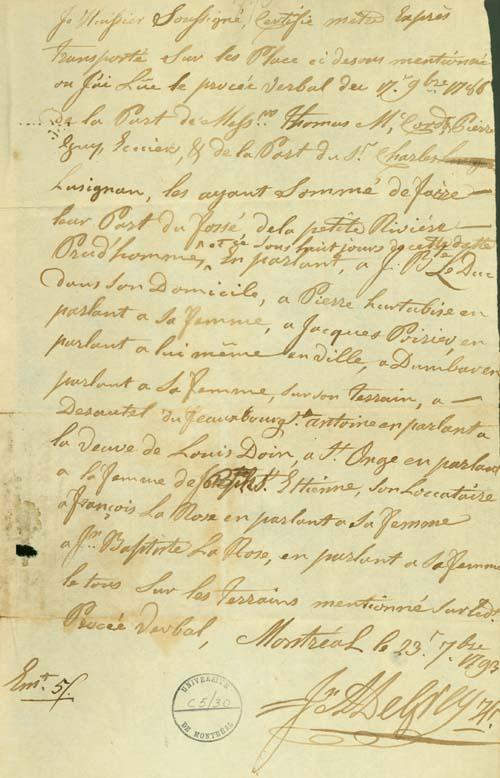 Je Huissier Soussigné, Certifie mêtre Exprès
transporté Sur les Place ci desous mentionné
ou J'ai Lüe le procée verbal du 17.e 9bre 1786
de la Part de Mess.rs Thomas Mc Cord & Pierre
Guy, Ecuier, & de la Part du Sr. Charles
Lusignan, les ayant Sommé de faire
leur Part du fossé, de la petite Riviére
Prud'homme, et ce sous huit jours de cette datte
En parlant, a J. Bte Le Duc
dans son Domicile, a Pierre hurtubise en
parlant a sa femme, a Jacques Poirier, en
parlant a lui même en ville, a Dumbar en
parlant a Sa femme, sur son terrain, a
Desautel du feauxbourg St. antoine en parlant a
la veuve de Louis Doin, a St. Onge en parlant
a la femme de St. Etienne, son Loccataire
a françois La Rose en parlant a sa femme
a Jn. Baptiste La Rose, en parlant a sa femme
le tous Sur les terrains mentionné sur led.
Procée Verbal, Montréal le 23.e 7bre 1793
Emt. 5/.
UNIVERSITÉ
C5/30
DE MONTRÉAL